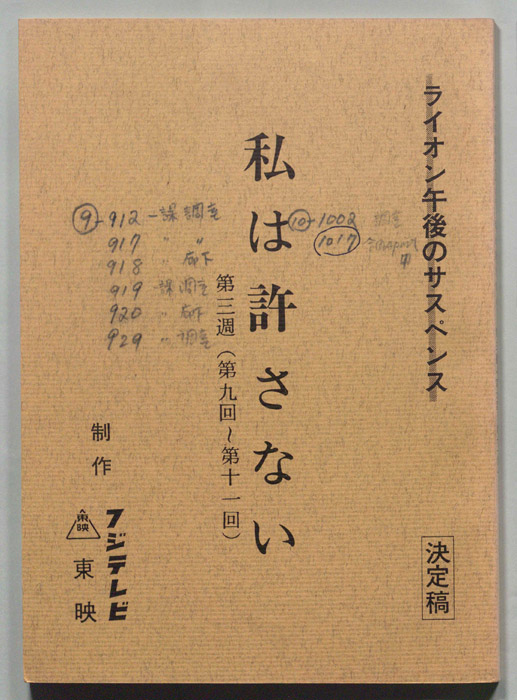 ライオン午後のサスペンス
決定稿
私は許さない
第三週（第九回〜第十一回）
⑨-912 一課 調室
917 〃 〃
918 〃 廊下
919 一課 調室
920 〃 廊下
929 〃 調室
⑩-1002 調室
1017
制作
フジテレビ
東映
東映